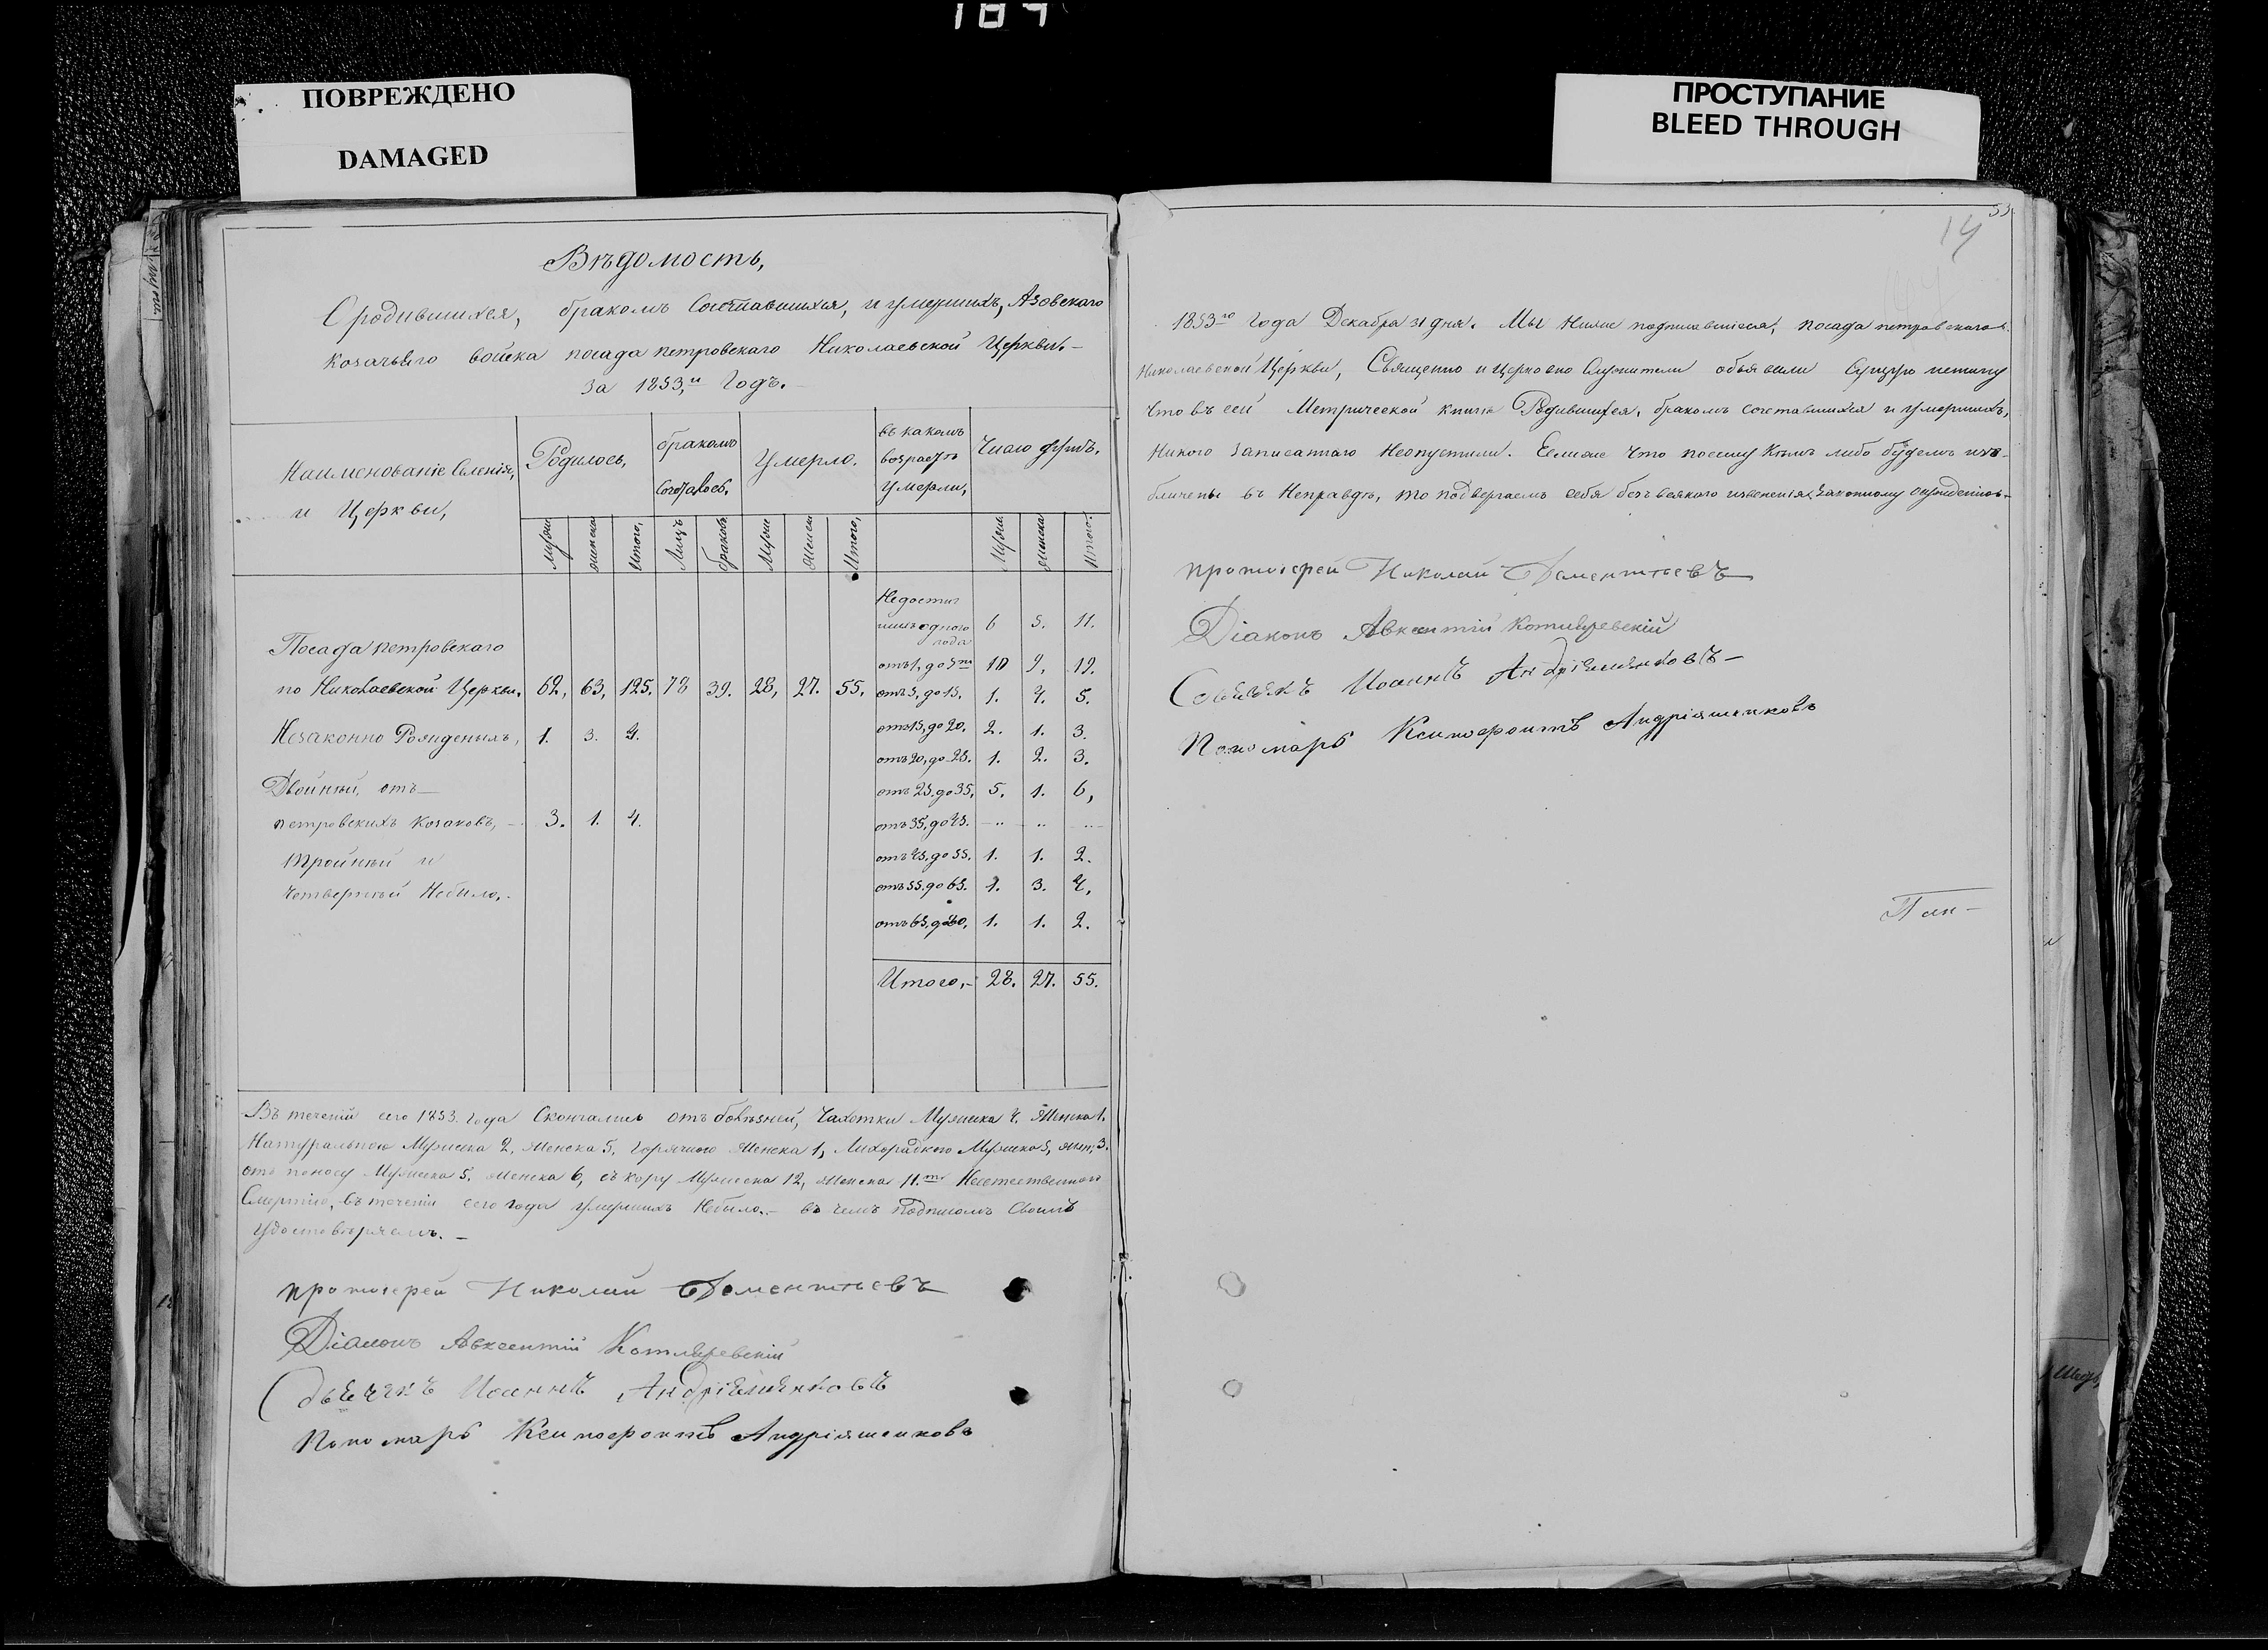 184
ПОВРЕЖДЕНО
DAMAGED
ПРОСТУПАНИЕ
BLEED THROUGH
Вѣдомость,
О родившихся, бракомъ Сочетавшихся, и умершихъ, Азовскаго
Козачьяго войска посада петровскаго Николаевской Церкви.-
За 1853,й Годъ.
Наименованіе Селенія,
и Церкви,
Родилось,
бракомъ
Сочеталось,
Умерло,
въ какомъ
возрастѣ
Умерли,
Число душъ,
мужеска
женска
Итого,
Лицъ
браковъ
Муже
Женск
Итого,
Мужеск
Женска
Итого.
Посада петровскаго
по Николаевской Церкви, 62, 63, 125. 78 39. 28, 27. 55.
Незаконно Рожденыхъ, 1. 3. 4.
Двойный, отъ
петровскихъ козаковъ, - 3. 1. 4.
Тройный и
Четверный Небыло,.
Недостиг
шихъ одного
года 6 5. 11.
отъ 1, до 5ти 10 9. 19.
отъ 5, до 15, 1. 4. 5.
отъ 15, до 20, 2. 1. 3.
отъ 20, до 25. 1. 2. 3.
отъ 25, до 35, 5. 1. 6,
отъ 35, до 45. -.. .. ...
отъ 45, до 55. 1. 1. 2.
отъ 55, до 65. 1. 3. 4,
отъ 65, до 1. 1. 2.
Итого,- 28. 27. 55.
Въ теченій сего 1853. Года Скончались отъ болѣзней, Чахотки Мужеска 4. Женска 1.
Натуральною Мужеска 2. Женска 5, Горячкою Женска 1, Лихорадкою Мужска 5, жен. 3.
отъ поносу Мужеска 5. Женска 6, съ кору Мужеска 12, Женска 11.ть Неестественною
Смертію, въ теченіи сего года умершихъ Небыло.- въ чемъ Подписомъ Своимъ
Удостовѣряемъ.-
протоіерей Николай Дементьевъ
Діаконъ Авксентій Котляревскій
Дьячекъ Иоаннъ Андріяшенковъ
Пономарь Ксенофонтъ Андріяшенковъ
53.
14
1853го Года Декабря 31 дня. Мы Ниже подписавшіеся, посада петровскаго
Николаевской Церкви, Священно и церковно Служители объявили Сущую истину
Что въ сей Метрической книгѣ Родившихся, бракомъ сочетавшихся и умершихъ,
Никого Записаннаго Неопустили. Еслиже Что посему Кѣмъ либо будемъ изо-
бличены въ Неправдѣ, то подвергаемъ себя безъ всякаго извененія, Законному осужденію.-
протоіерей Николай Дементьевъ
Діаконъ Авксентій Котляревскій
Иоаннъ Андріяшенковъ-
Пономарь Ксенофонтъ Андріяшенковъ